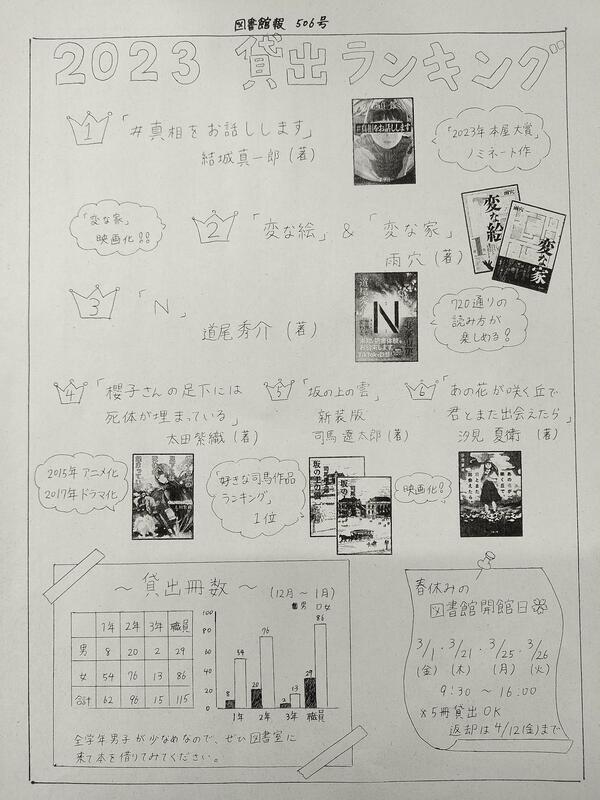 図書館報 506号
2023 貸出ランキング
1 「#真相をお話しします」
結城真一郎(著)
#真相をお話しします
「2023年本屋大賞」
ノミネート作
「変な家」
映画化!!
2 「変な絵」&「変な家」
雨穴(著)
雨穴
変な絵
雨穴
変な家
3 「N」
道尾秀介(著)
道尾秀介
N
720通りの
読み方が
楽しめる!
4 「櫻子さんの足下には
死体が埋まっている」
太田紫織(著)
5 「坂の上の雲」
新装版
司馬遼太郎(著)
6 「あの花が咲く丘で
君とまた出会えたら」
汐見夏衛(著)
2015年アニメ化
2017年ドラマ化
「好きな司馬作品
ランキング」
1位
坂の上の雲
坂の上の雲
映画化!
あの花が咲く丘で、君とまた出会えたら。
~貸出冊数~ (12月~1月)
1年 2年 3年 職員
男 8 20 2 29
女 54 76 13 86
合計 62 96 15 115
■男 □女
100
80
60
40
20
0
8 54 20 76 2 13 29 86
1年 2年 3年 職員
全学年男子が少なめなので、ぜひ図書室に
来て本を借りてみてください。
春休みの
図書館開館日
3/1・3/21・3/25・3/26
(金) (木) (月) (火)
9:30~16:00
※5冊貸出OK
返却は4/12(金)まで